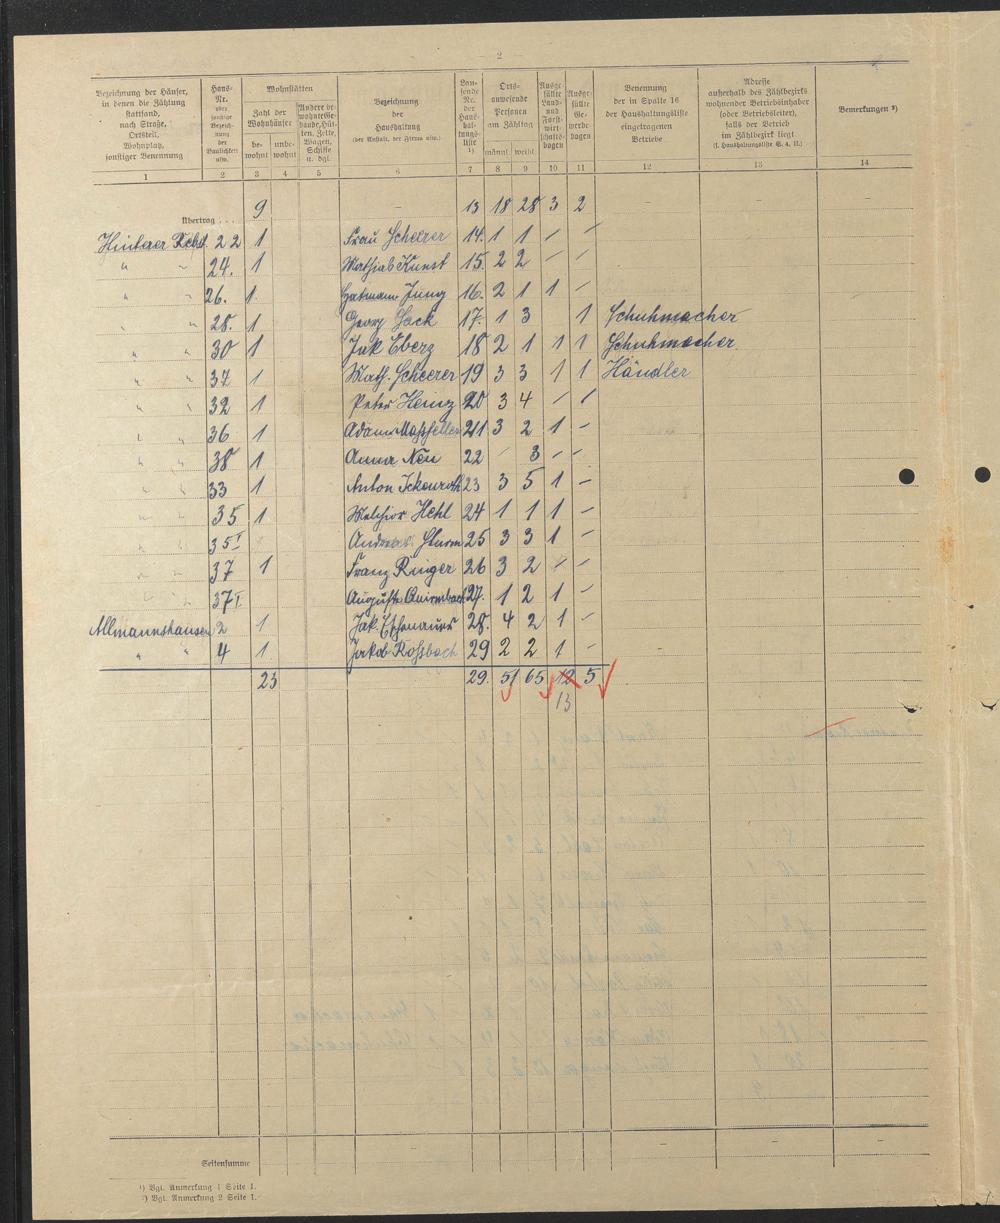 — 2 —
Bezeichnung der Häuser, in denen die Zählung stattfand, nach Straße, Ortsteil, Wohnplatz, sonstiger Benennung
Haus-Nr. oder sonstige Bezeichnung der Baulichkeiten usw.
Wohnstätten
Zahl der Wohnhäuser
be-wohnt
unbe-wohnt
Andere bewohnte Gebäude, Hütten, Zelte, Wagen, Schiffe u. dgl.
Bezeichnung der Haushaltung (der Anstalt, der Firma usw.)
Laufende Nr. der Haushaltungsliste 1)
Ortsanwesende Personen am Zähltag
männl. weibl.
Ausgefüllte Land- und Forstwirtschaftsbogen
Ausgefüllte Gewerbebogen
Benennung der in Spalte 16 der Haushaltungsliste eingetragenen Betriebe
Adresse außerhalb des Zählbezirks wohnender Betriebsinhaber (oder Betriebsleiter), falls der Betrieb im Zählbezirk liegt (s. Haushaltungsliste S. 4, II.)
Bemerkungen 2)
1 2 3 4 5 6 7 8 9 10 11 12 13 14
Übertrag . . . 9 — 13 18 28 3 2
22 1 Frau Scherer 14. 1 1 – –
" " 24. 1 Mathias Kunst 15. 2 2 – –
" " 26. 1 Hartmann Jung 16. 2 1 1 –
" " 28. 1 Georg 17. 1 3 1 Schuhmacher
" " 30 1 Jak Eberz 18 2 1 1 1 Schuhmacher
" " 37 1 Math. Scheerer 19 3 3 1 1 Händler
" " 32 1 Peter Heinz 20 3 4 – –
" " 36 1 Adam 21 3 2 1 –
" " 38 1 Anna 22 – 3 – –
" " 33 1 Anton Ickenroth 23 3 5 1 –
" " 35 1 Melchior Hehl 24 1 1 1 –
" " 35 I Andreas Sturm 25 3 3 1 –
" " 37 1 Franz Ringer 26 3 2 – –
" " 37 I Auguste 27. 1 2 1 –
Allmannshausen 2 1 Jak. Eschenauer 28. 4 2 1 –
" " 4 1 Jakob Roßbach 29 2 2 1 –
23 29. 51 65 12 5
13
Seitensumme — —
1) Vgl. Anmerkung 1 Seite 1.
2) Vgl. Anmerkung 2 Seite 1.